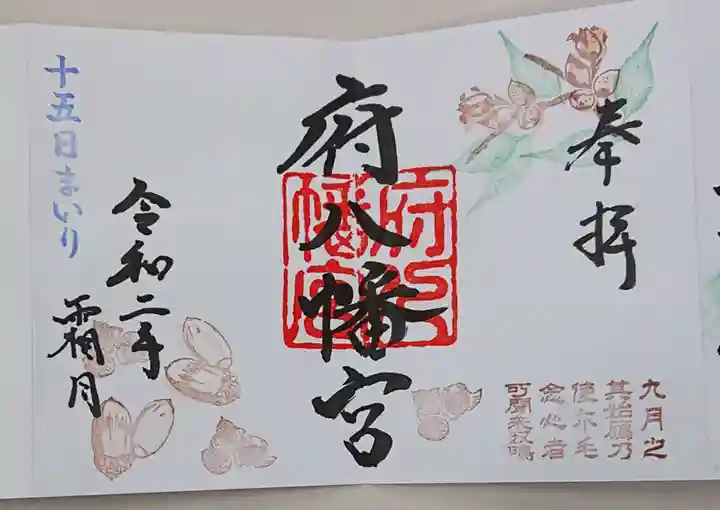 奉拝
府八幡宮
府八
幡宮
令和二年
霜月
十五日まいり
九月之
其始鴈乃
使尓毛
念心者
可聞来奴鴨